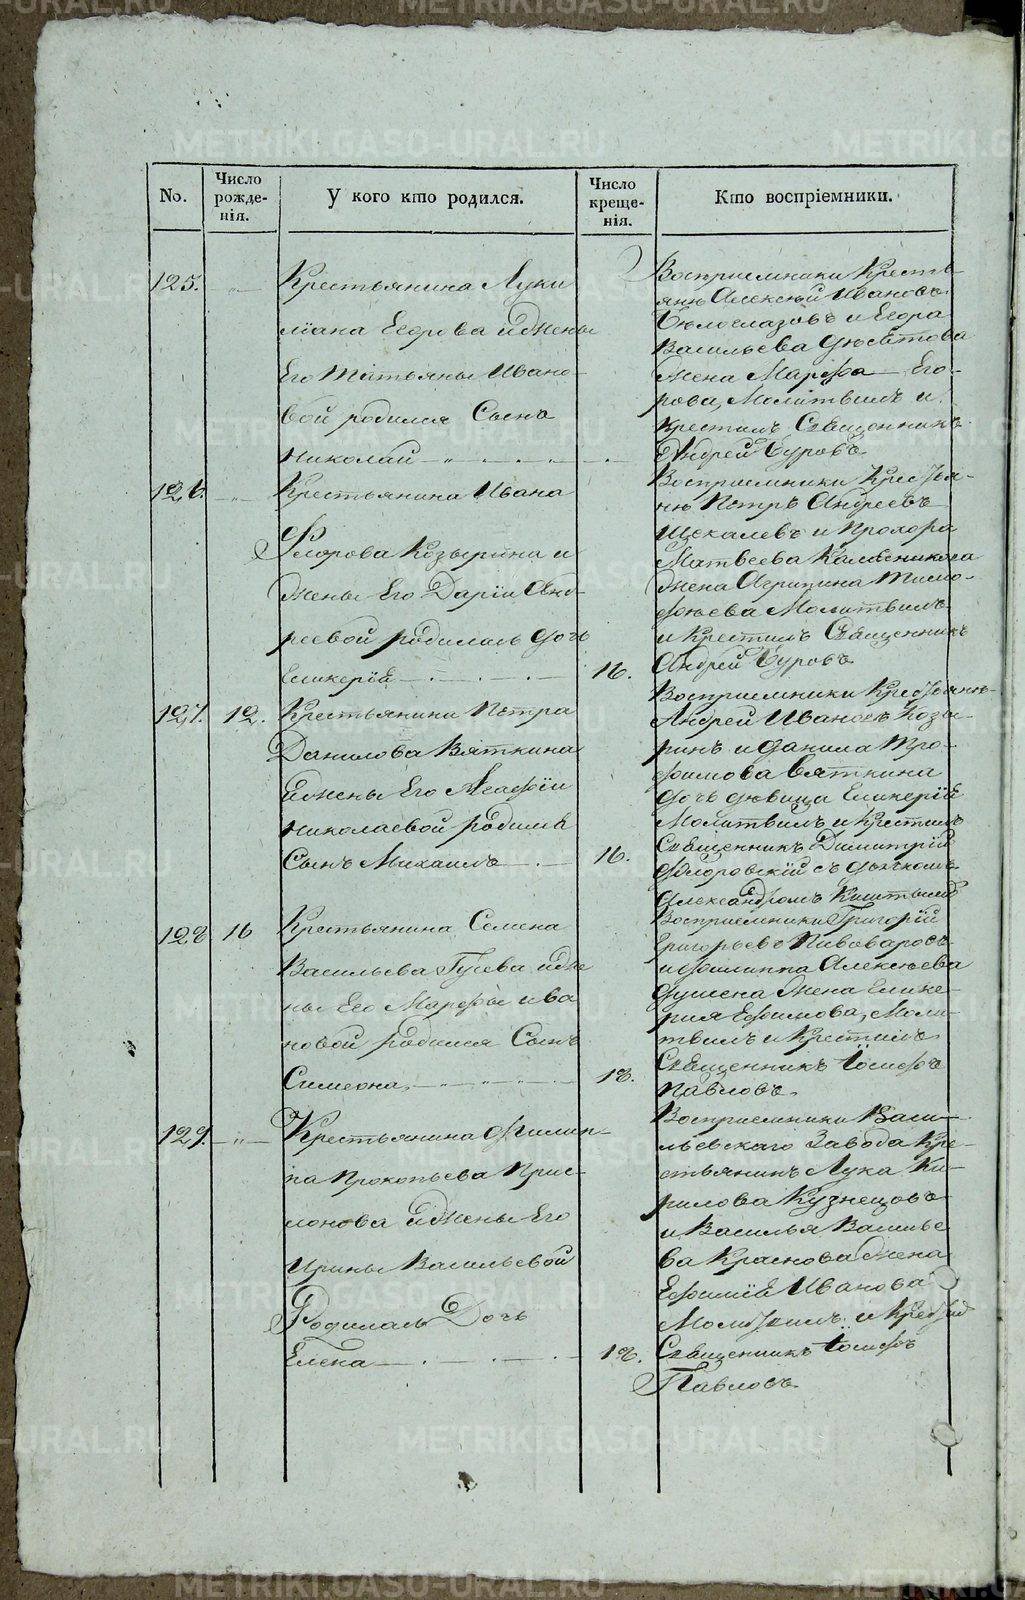 No.
Число рожде-нія.
У кого кто родился.
Число креще-нія.
Кто воспріемники.
125. — „ —
Крестьянина Луки
ліана Егорова и жены
Его Татьяны Ивано-
вой родился Сынъ
Николай
Воспріемники Кресть-
янъ Алексѣй Ивановъ
Бѣлоглазовъ и Егора
Васильева
жена Марфа Его-
рова, Молитвилъ и
крестилъ Священникъ
Андрей Суровъ
126. — „ —
Крестьянина Ивана
Флорова Козырина и
жены Его Дарiи Анд-
реевой родилась дочь
Гликерiя
16.
Воспріемники Крестья-
нъ Петръ Андреевъ
Щекалевъ и Прохора
Матвеева Калашникова
жена Агрипина Тимо-
фѣева Молитвилъ
и Крестилъ Священникъ
Андрей Суровъ
127. 12.
Крестьянина Петра
Данилова Вяткина
и жены Его Агафiи
Николаевой родился
Сынъ Михаилъ
16.
Воспріемники Крестьянъ
Андрей Ивановъ Козы-
ринъ и Данила Тро-
фимова Вяткина
дочь дѣвица Гликерiя
Молитвилъ и Крестилъ
Священникъ Димитрiй
Флоровскiй съ дьячкомъ
Александромъ
128 16
Крестьянина Семена
Васильева Гусева и же
ны Его Марфы Ива
новой родился Сынъ
Симеонъ
18.
Воспріемники Григорiй
Григорьевъ Пивоваровъ
и Филиппа Алексѣева
жена Глике-
рия Ефимова, Моли-
твилъ и Крестилъ
Священникъ Iосифъ
Павловъ.
129. — „ —
Крестьянина Филип-
па Прокопьева
и жены Его
Ирины Васильевой
Родилась Дочь
Елена
18.
Воспріемники Васи-
льевскаго Завода Кре-
стьянинъ Лука Ки-
рилова Кузнецовъ
и Василья Василье
ва Краснова жена
Ефимiя Иванова
Молитвилъ и Крестил
Священникъ Iосифъ
Павловъ
METRIKI.GASO-URAL.RU